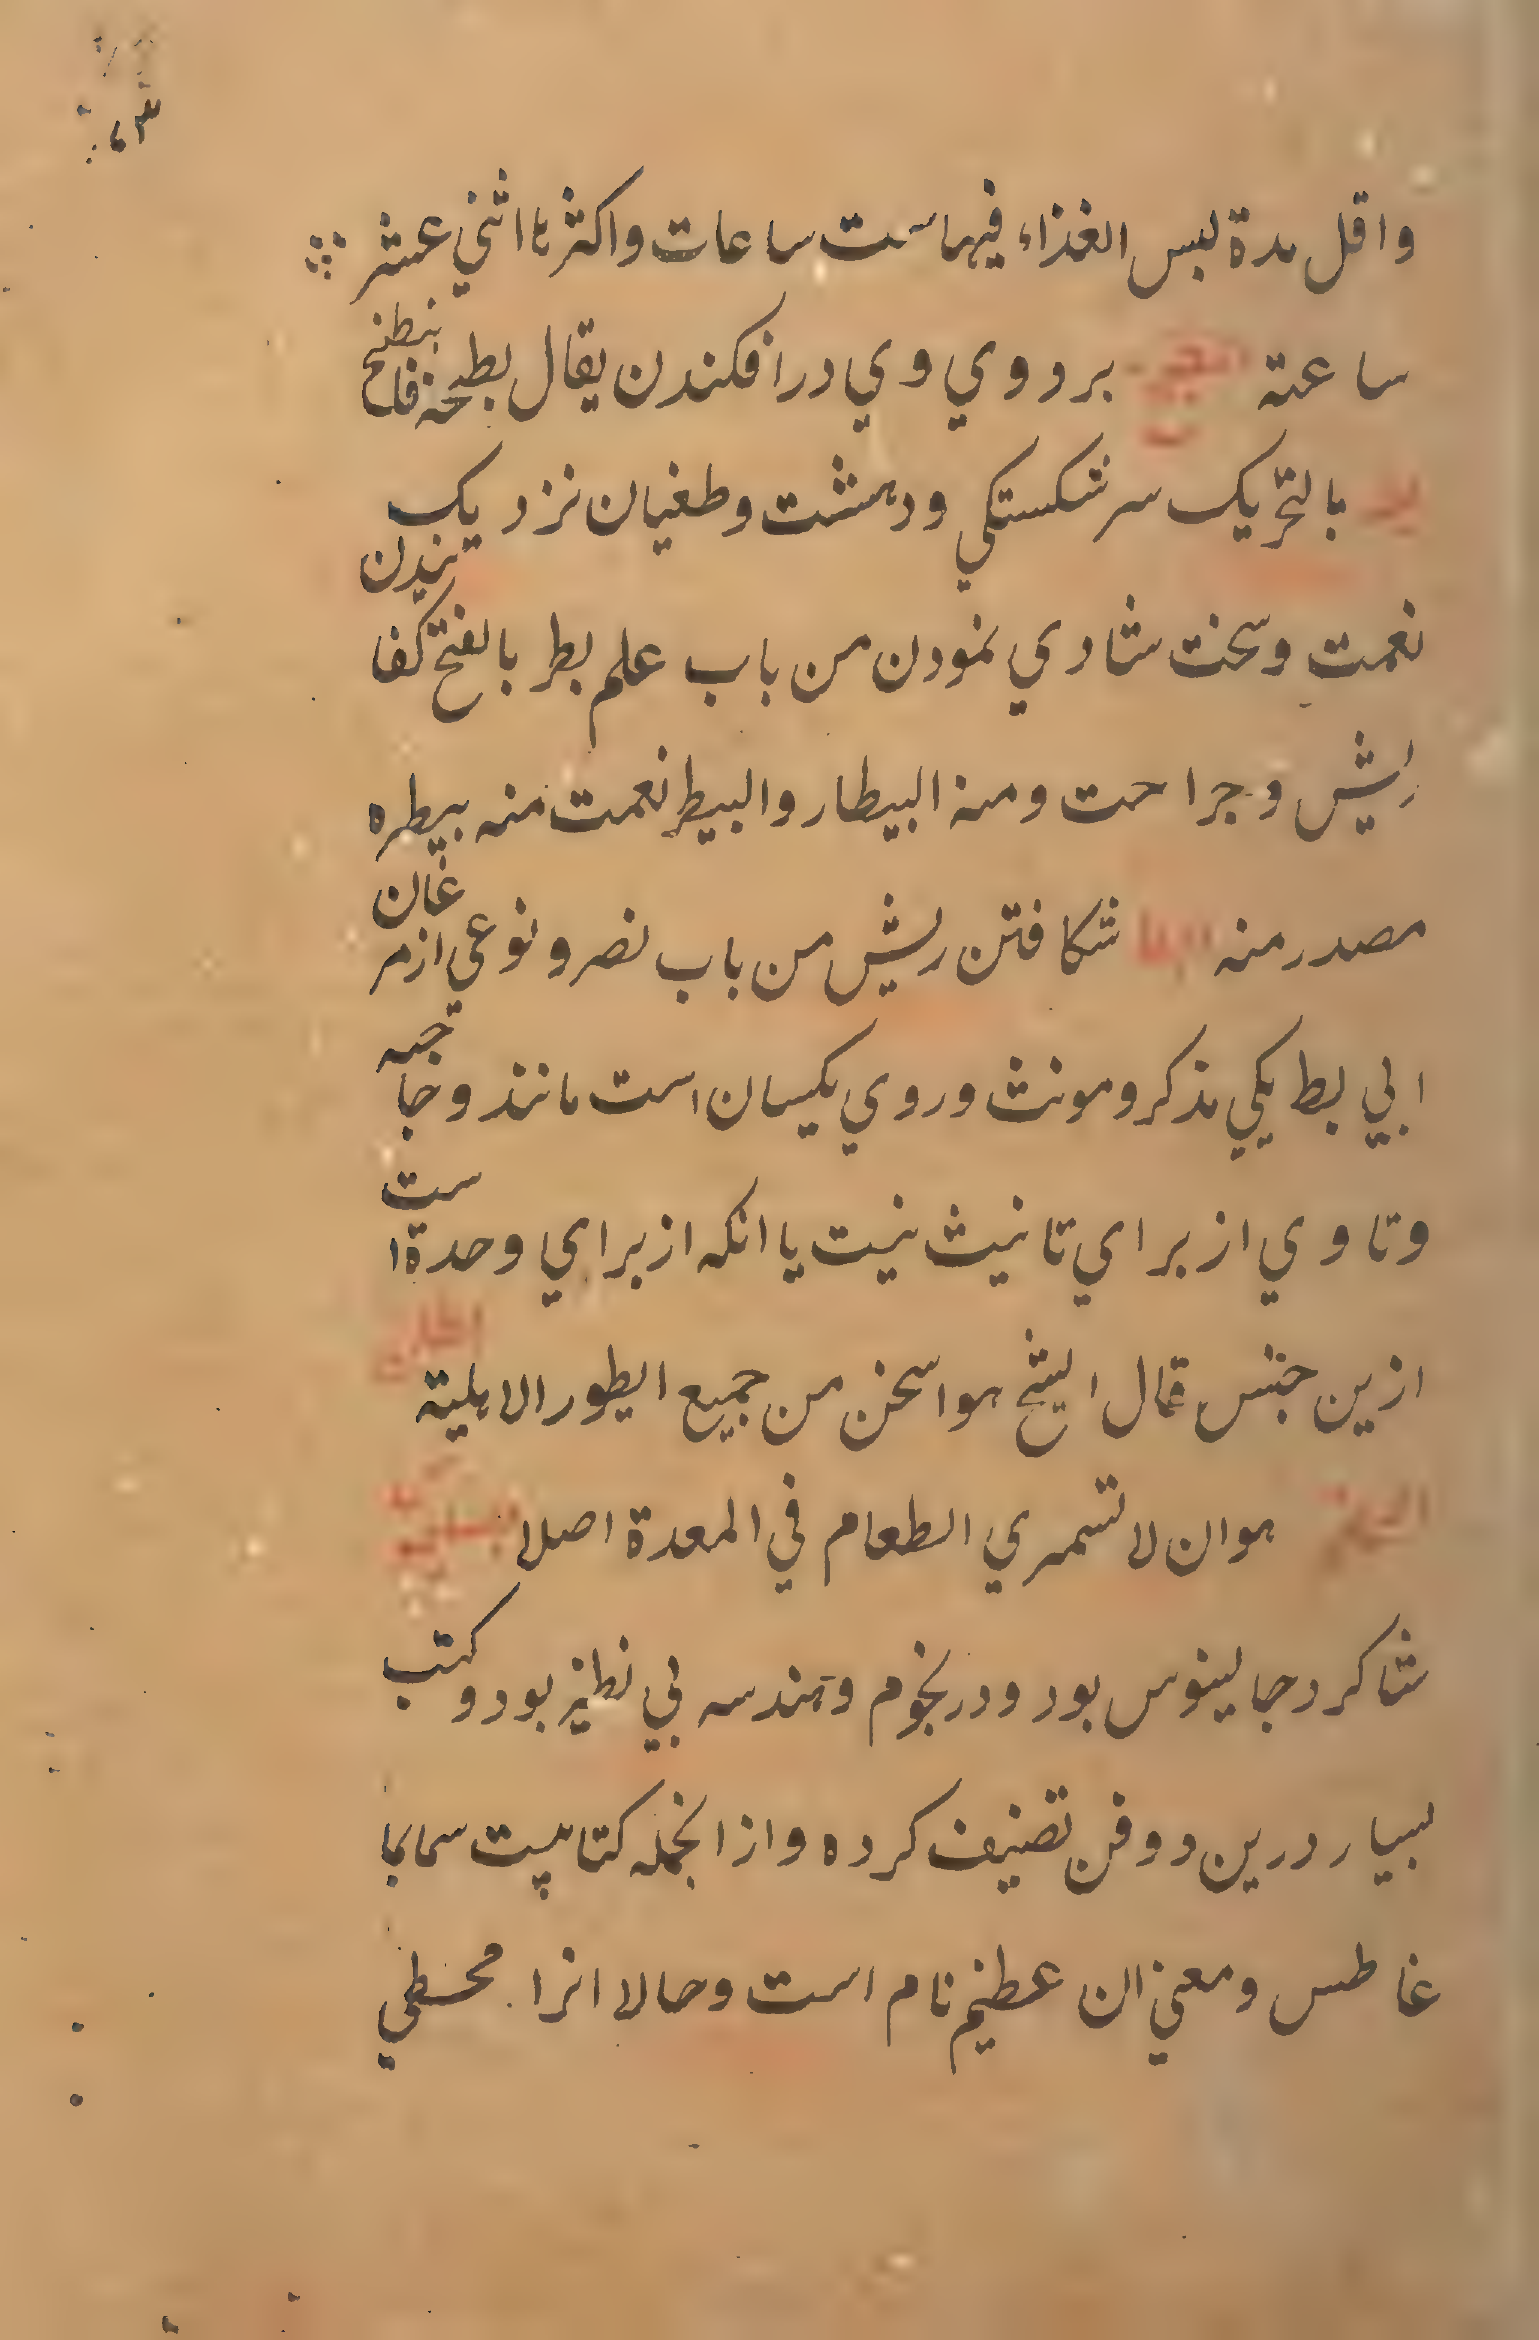 واقل مدة لبس الغذاء فيها ست ساعات واكثرها اثني عشر
ساعته بر روي وي در افكندن يقال بطحه فانبطح
بالتحريك سر شكستكي ودهشت وطغيان نزديك
نعمت وسخت شادي نمودن من باب علم بط بالفتح كفانيدن
ريش وجراحت ومنه البيطار والبيطر نعمت منه بيطره
مصدر منه شكافتن ريش من باب نصر ونوعي از مرغان
ابي بط يكي مذكر ومونث وروي يكسان است مانند دجاجه
وتا وي از براي تانيث نيست يا انكه از براي وحدة است
ازين جنس قال الشيخ هو اسخن من جميع الطيور الاهلية
هو ان لا تستمري الطعام في المعدة اصلا
شاكرد جالينوس بود ودر نجوم وهندسه بي نظير بود وكتب
بسيار درين دو فن تصنيف كرده واز انجمله كتابيست سما بما
غاطس ومعني ان عظيم نام است وحالا انرا مجسطي